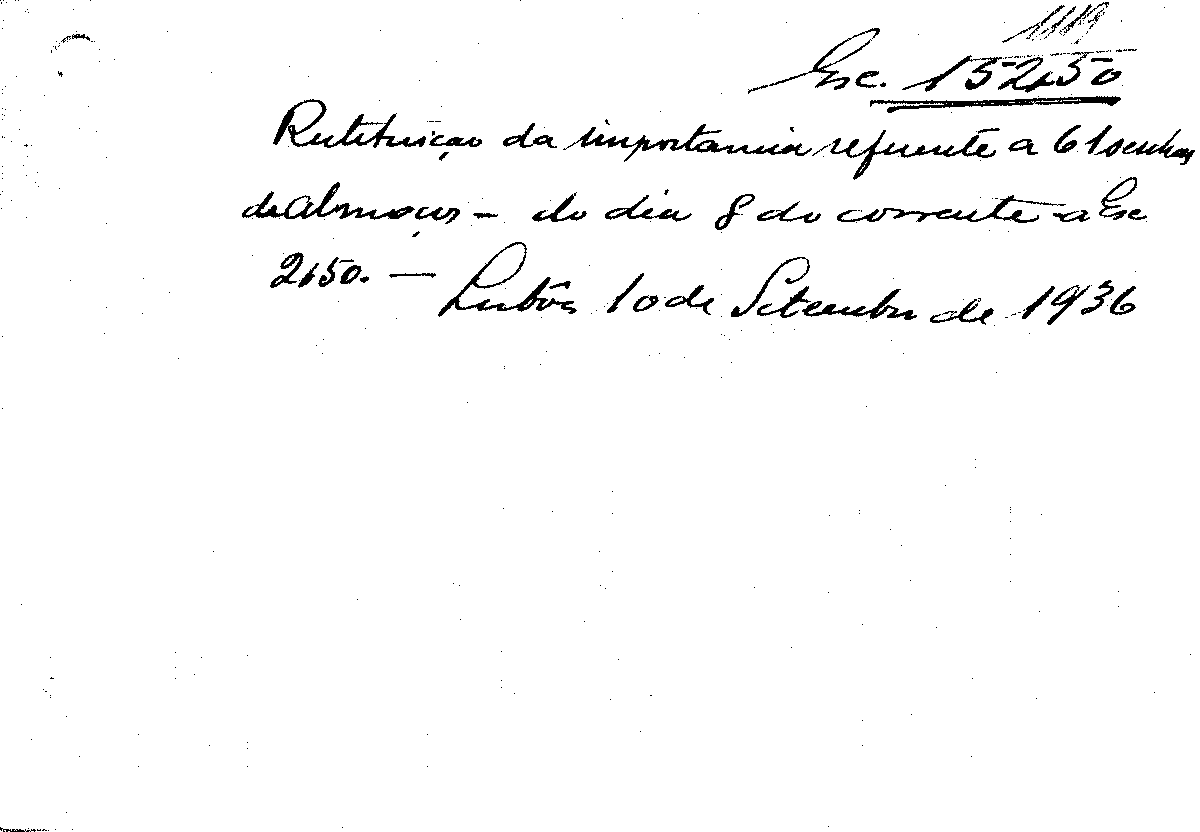 Esc. 152$50
Restituição da importancia referente a 61 senhas
de almoços - do dia 8 do corrente - a Esc
2$50. —
Lisbôa 10 de Setembro de 1936